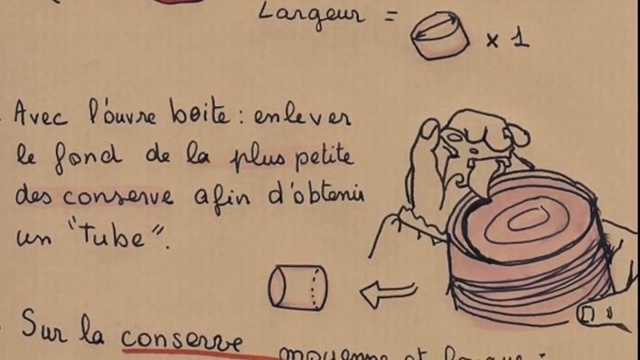 Largeur = x 1
Avec l'ouvre boite : enlever
le fond de la plus petite
des conserve afin d'obtenir
un "tube".
Sur la conserve moyenne et